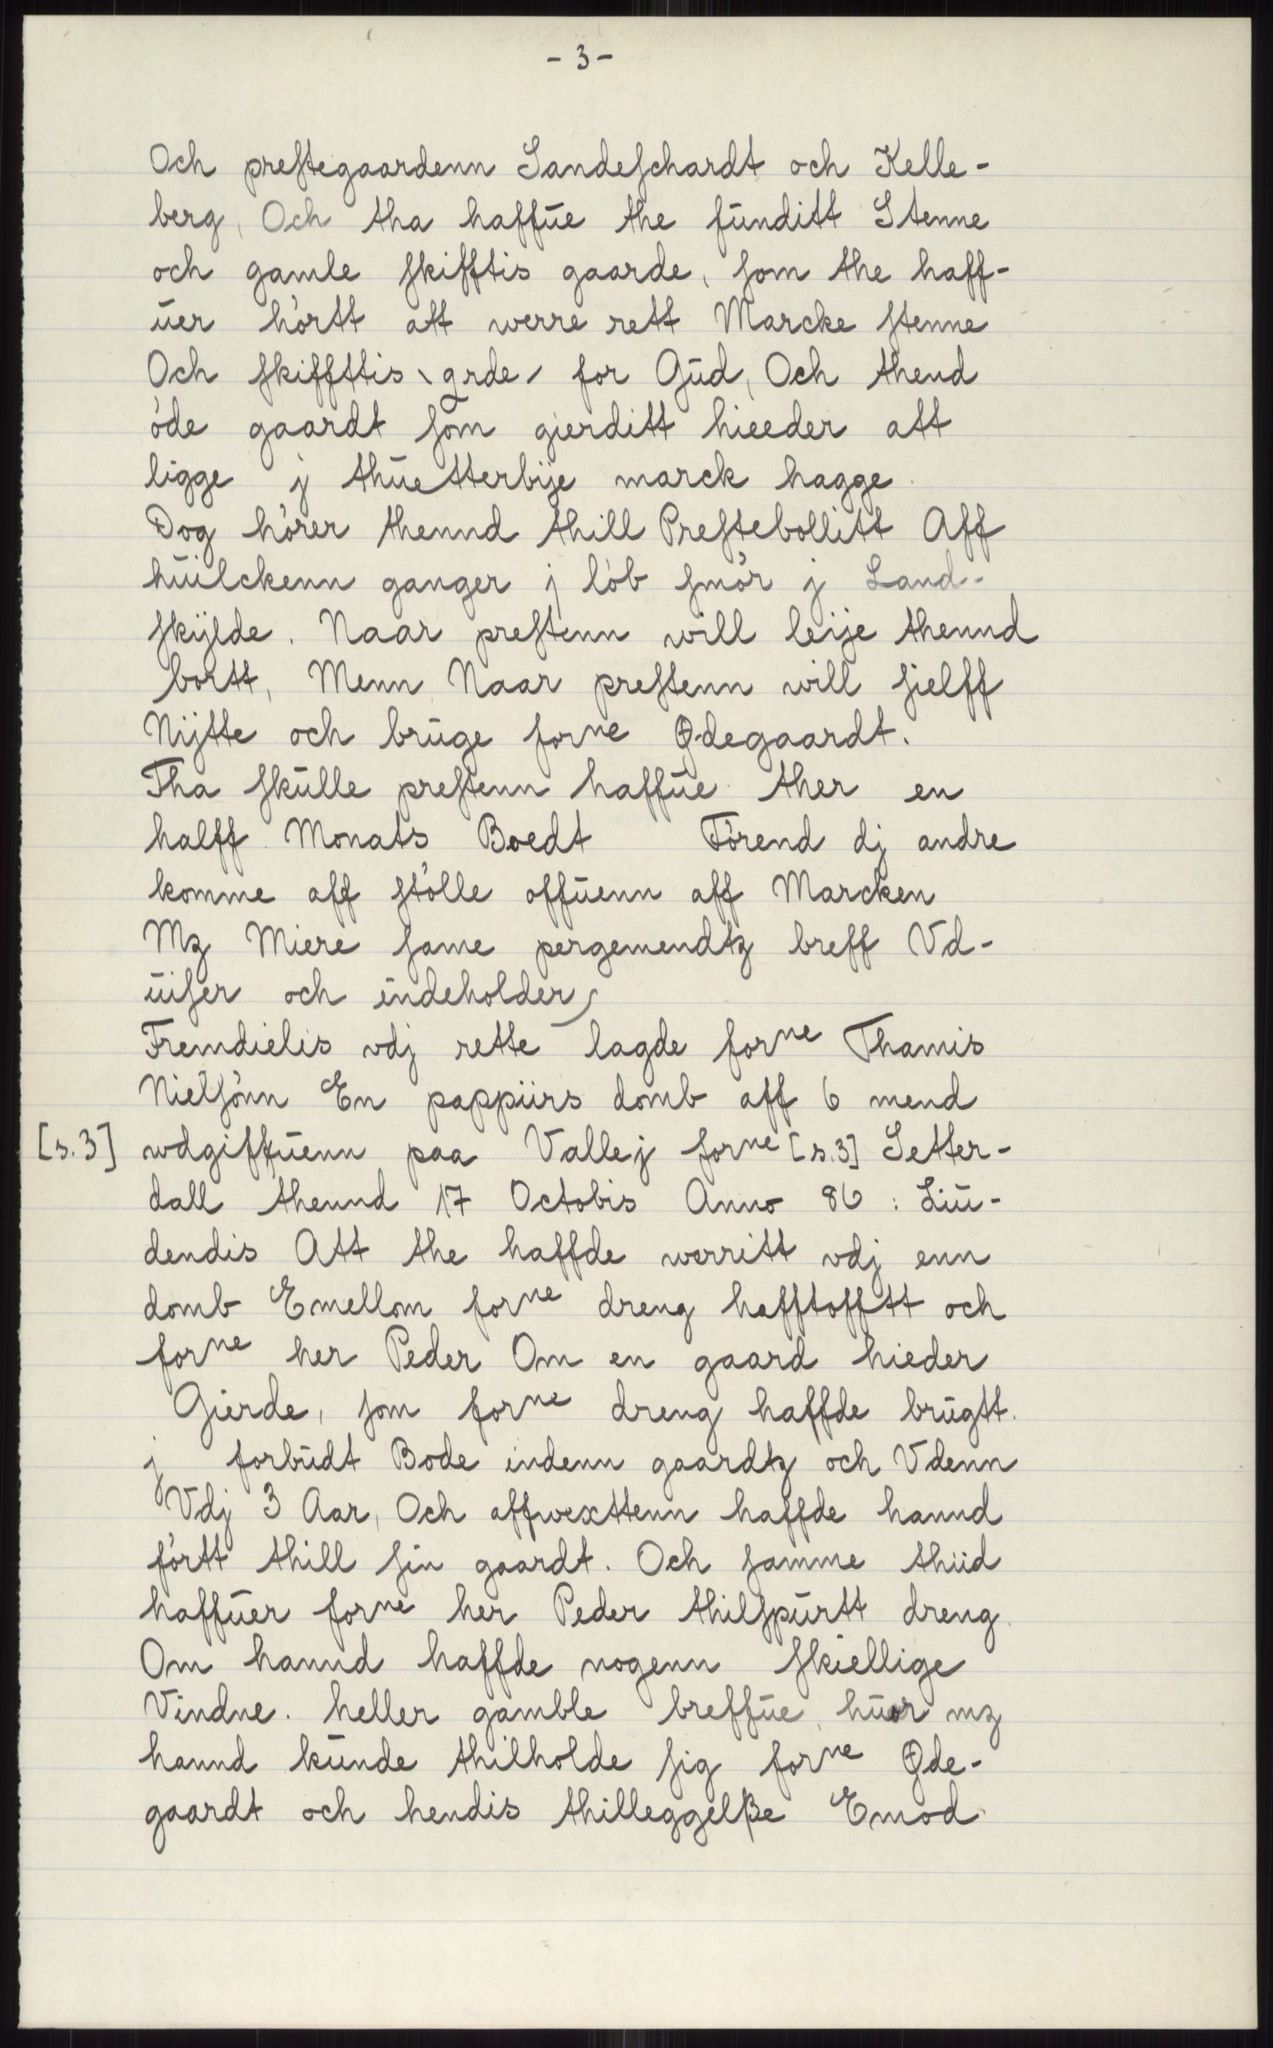 - 3 -
Och prestegaardenn Sandeschardt och Kelle-
berg, Och tha haffūe the fūnditt Stenne
och gamle skifftis gaarde, som the haff-
ūer hörtt att werre rett Marcke stenne
Och skiffttis \ grde / for Gūd, Och thend
öde gaardt som gierditt hieeder att
ligge j thūetterbije marck hagge.
Dog hörer thennd thill Prestebollitt Aff
hūilckenn ganger j löb smör j Land-
skÿlde. Naar prestenn will leije thennd
bortt, Menn Naar prestenn will sielff
Nÿtte och brūge forne Ødegaardt.
Tha skūlle prestenn haffūe ther en
halff Monats Boedt Förend dj andre
komme aff stölle offūenn aff Marcken
Mz Miere same pergemendtz breff Vd-
ūiser och indeholder
Fremdielis vdj rette lagde forne Thamis
Nielsönn En pappiirs domb aff 6 mend
[s. 3] wdgiffūenn paa Vallej forne [s. 3] Setter-
dall thennd 17 Octobis Anno 86 : Liū-
dendis Att the haffde werritt vdj enn
domb Emellom forne dreng hafftofftt och
forne her Peder Om en gaard hieder
Gierde, som forne dreng haffde brūgtt.
j forbūdt Bode indenn gaardtz och Vdenn
Vdj 3 Aar, Och affwexttenn haffde hannd
förtt thill sin gaardt. Och samme thiid
haffūer forne her Peder thilspūrtt dreng.
Om hannd haffde nogenn skiellige
Vindne. heller gamble breffūe, hūor mz
hannd kūnde thilholde sig forne Øde-
gaardt och hendis thilleggelße Emod